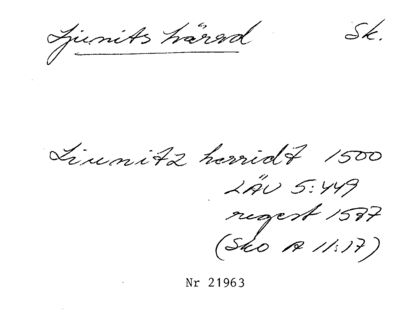 Ljunits härad Sk.
Liunitz herridt 1500
LÄU 5:449
regest 1587
(Sko A 11:17)
Nr 21963